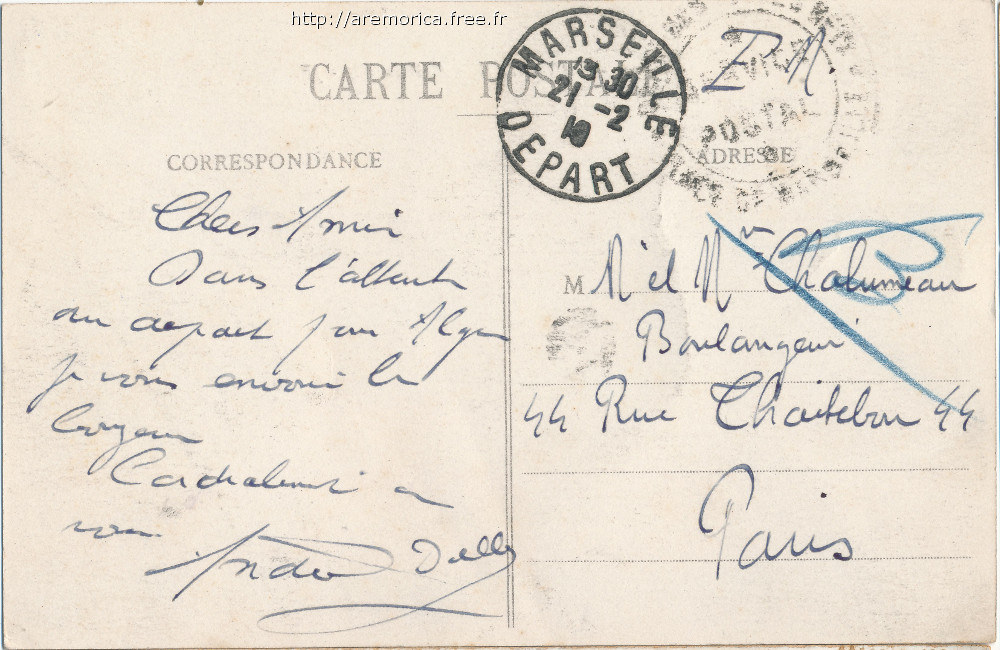 http://aremorica.free.fr
CARTE POSTALE
MARSEILLE
13 30
21 -2
DEPART
F M
SERVICE
POSTAL
CORRESPONDANCE
ADRESSE
Chers Amis
Dans l'attente
du depart pour Alger
je vous envoie le
bonjour
Cordialement a
vous
André
M
M et Mme Chalumeau
Boulanger
44 Rue 44
Paris